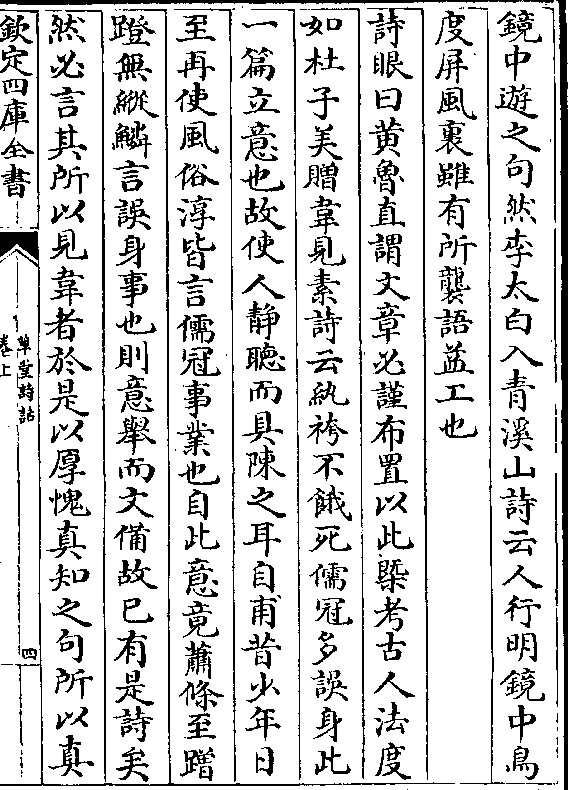 鏡中遊之句然李太白入青溪山詩云人行明鏡中鳥
度屏風裏雖有所襲語益工也
詩眼曰黄魯直謂文章必謹布置以此槩考古人法度
如杜子美贈韋見素詩云紈袴不餓死儒冠多誤身此
一篇立意也故使人静聽而具陳之耳自甫昔少年日
至再使風俗淳皆言儒冠事業也自此意竟蕭條至蹭
蹬無縱鱗言誤身事也則意舉而文備故已有是詩矣
然必言其所以見韋者於是以厚愧真知之句所以真
欽定四庫全書
草堂詩話
卷上
四